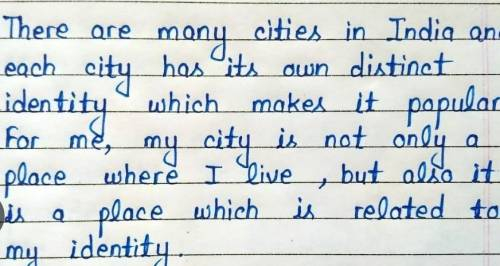 There are many cities in India an
each city has its own distinct
identity which makes it popular
For me, my city is not only a
place where I live , but also it
is a place which is related to
my identity.